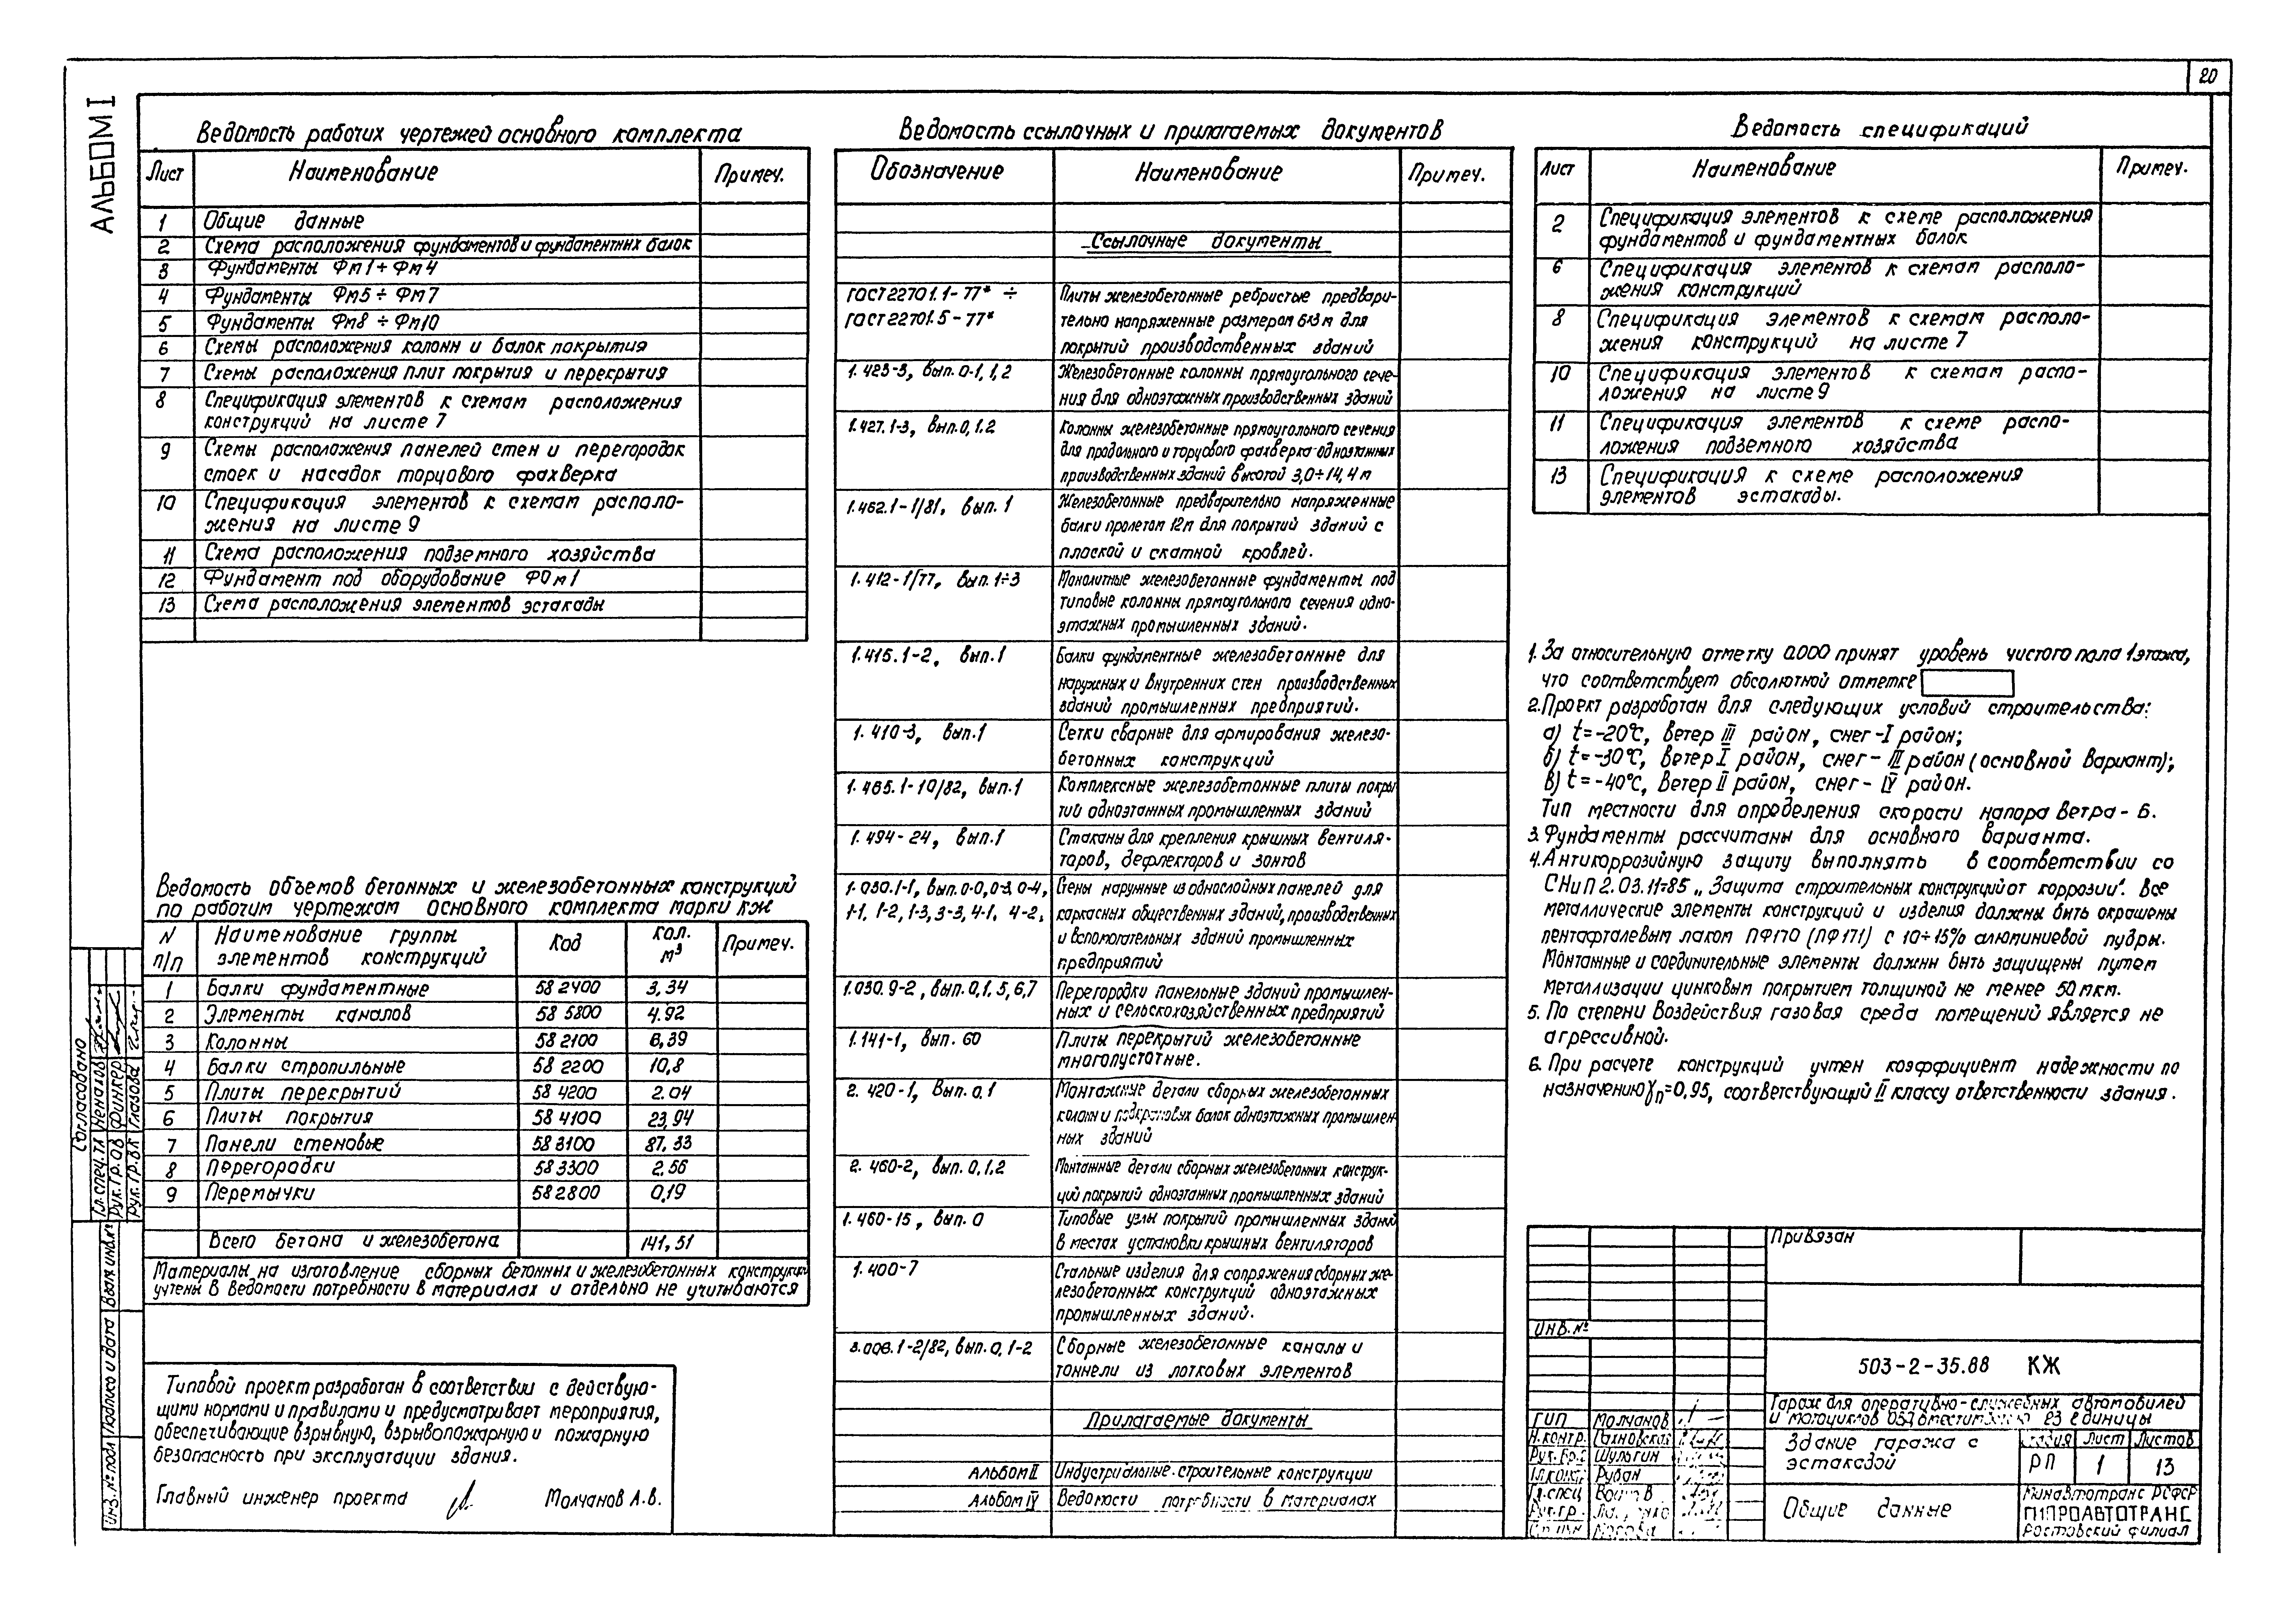 20
АЛЬБОМ I
Ведомость рабочих чертежей основного комплекта
Лист Наименование Примеч.
1 Общие данные
2 Схема расположения фундаментов и фундаментных балок
3 Фундаменты Фм1÷Фм4
4 Фундаменты Фм5÷Фм7
5 Фундаменты Фм8÷Фм10
6 Схемы расположения колонн и балок покрытия
7 Схемы расположения плит покрытия и перекрытия
8 Спецификация элементов к схемам расположения
конструкций на листе 7
9 Схемы расположения панелей стен и перегородок
стоек и насадок торцового фахверка
10 Спецификация элементов к схемам располо-
жения на листе 9
11 Схема расположения подземного хозяйства
12 Фундамент под оборудование ФОм1
13 Схема расположения элементов эстакады
Ведомость объемов бетонных и железобетонных конструкций
по рабочим чертежам основного комплекта марки КЖ
N п/п Наименование группы элементов конструкций Код Кол. м³ Примеч.
1 Балки фундаментные 582400 3,34
2 Элементы каналов 585800 4.92
3 Колонны 582100 6,39
4 Балки стропильные 582200 10,8
5 Плиты перекрытий 584200 2.04
6 Плиты покрытия 584100 23,94
7 Панели стеновые 583100 87,33
8 Перегородки 583300 2.56
9 Перемычки 582800 0,19
Всего бетона и железобетона 141,51
Материалы на изготовление сборных бетонных и железобетонных конструкций
учтены в ведомости потребности в материалах и отдельно не учитываются
Типовой проект разработан в соответствии с действую-
щими нормами и правилами и предусматривает мероприятия,
обеспечивающие взрывную, взрывопожарную и пожарную
безопасность при эксплуатации здания.
Главный инженер проекта Молчанов А.В.
Согласовано
Гл.спец.тл Ненахов
Рук.гр.ов Финкер
Рук.гр.вк Глазова
Инв.№ подл Подпись и дата Взам инв.№
Ведомость ссылочных и прилагаемых документов
Обозначение Наименование Примеч.
Ссылочные документы
ГОСТ 22701.1-77* ÷ Плиты железобетонные ребристые предвари-
ГОСТ 22701.5-77* тельно напряженные размером 6×3м для
покрытий производственных зданий
1.423-3, вып. 0-1, 1, 2 Железобетонные колонны прямоугольного сече-
ния для одноэтажных производственных зданий
1.427.1-3, вып.0, 1.2 Колонны железобетонные прямоугольного сечения
для продольного и торцового фахверка одноэтажных
производственных зданий высотой 3,0÷14,4м
1.462.1-1/81, вып. 1 Железобетонные предварительно напряженные
балки пролетом 12м для покрытий зданий с
плоской и скатной кровлей.
1.412-1/77, вып. 1÷3 Монолитные железобетонные фундаменты под
типовые колонны прямоугольного сечения одно-
этажных промышленных зданий.
1.415.1-2, вып.1 Балки фундаментные железобетонные для
наружных и внутренних стен производственных
зданий промышленных предприятий.
1.410-3, вып.1 Сетки сварные для армирования железо-
бетонных конструкций
1.465.1-10/82, вып.1 Комплексные железобетонные плиты покры
тий одноэтажных промышленных зданий
1.494-24, вып.1 Стаканы для крепления крышных вентиля-
торов, дефлекторов и зонтов
1.030.1-1, вып.0-0, 0-3, 0-4, Стены наружные из однослойных панелей для
1-1, 1-2, 1-3, 3-3, 4-1, 4-2, каркасных общественных зданий, производственных
и вспомогательных зданий промышленных
предприятий
1.030.9-2, вып.0, 1, 5, 6, 7 Перегородки панельные зданий промышлен-
ных и сельскохозяйственных предприятий
1.141-1, вып. 60 Плиты перекрытий железобетонные
многопустотные.
2.420-1, Вып. 0,1 Монтажные детали сборных железобетонных
колонн и подкрановых балок одноэтажных промышлен-
ных зданий
2.460-2, вып. 0,1,2 Монтажные детали сборных железобетонных конструк-
ций покрытий одноэтажных промышленных зданий
1.460-15, вып. 0 Типовые узлы покрытий промышленных зданий
в местах установки крышных вентиляторов
1.400-7 Стальные изделия для сопряжения сборных же-
лезобетонных конструкций одноэтажных
промышленных зданий.
3.006.1-2/82, вып. 0, 1-2 Сборные железобетонные каналы и
тоннели из лотковых элементов
Прилагаемые документы
Альбом II Индустриальные строительные конструкции
Альбом IV Ведомости потребности в материалах
Ведомость спецификаций
Лист Наименование Примеч.
2 Спецификация элементов к схеме расположения
фундаментов и фундаментных балок
6 Спецификация элементов к схемам располо-
жения конструкций
8 Спецификация элементов к схемам располо-
жения конструкций на листе 7
10 Спецификация элементов к схемам распо-
ложения на листе 9
11 Спецификация элементов к схеме распо-
ложения подземного хозяйства
13 Спецификация к схеме расположения
элементов эстакады.
1. За относительную отметку 0.000 принят уровень чистого пола 1 этажа,
что соответствует абсолютной отметке
2. Проект разработан для следующих условий строительства:
а) t=-20°с, ветер III район, снег-I район;
б) t=-30°с, ветер I район, снег-III район (основной вариант);
в) t=-40°с, ветер II район, снег-IV район.
Тип местности для определения скорости напора ветра - Б.
3. Фундаменты рассчитаны для основного варианта.
4. Антикоррозийную защиту выполнять в соответствии со
СНиП 2.03.11-85 „Защита строительных конструкций от коррозии". Все
металлические элементы конструкций и изделия должны быть окрашены
пентафталевым лаком ПФ170 (ПФ171) с 10÷15% алюминиевой пудры.
Монтажные и соединительные элементы должны быть защищены путем
металлизации цинковым покрытием толщиной не менее 50мкм.
5. По степени воздействия газовая среда помещений является не
агрессивной.
6. При расчете конструкций учтен коэффициент надежности по
назначению γп=0,95, соответствующий II классу ответственности здания.
Привязан
Инв.№
503-2-35.88 КЖ
Гараж для оперативно-служебных автомобилей
и мотоциклов ОВД вместимостью 23 единицы
ГИП Молчанов
Н.контр.
Рук.бр. Шульгин
Гл.констр. Рудан
Гл.спец
Рук.гр.
Здание гаража с
эстакадой
Стадия Лист Листов
РП 1 13
Общие данные
Минавтотранс РСФСР
ГИПРОАВТОТРАНС
Ростовский филиал